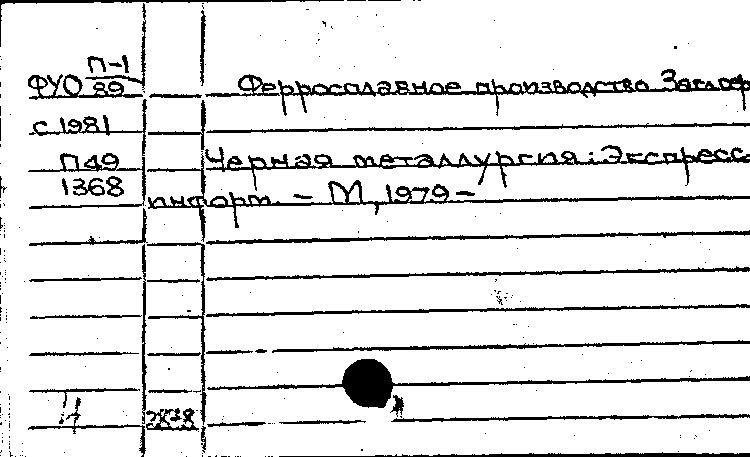 П-1
ФУО 89 Ферросплавное производство Заглоф
с 1981
П49 Черная металлургия: Экспресс
1368 информ. – М, 1979 –
И